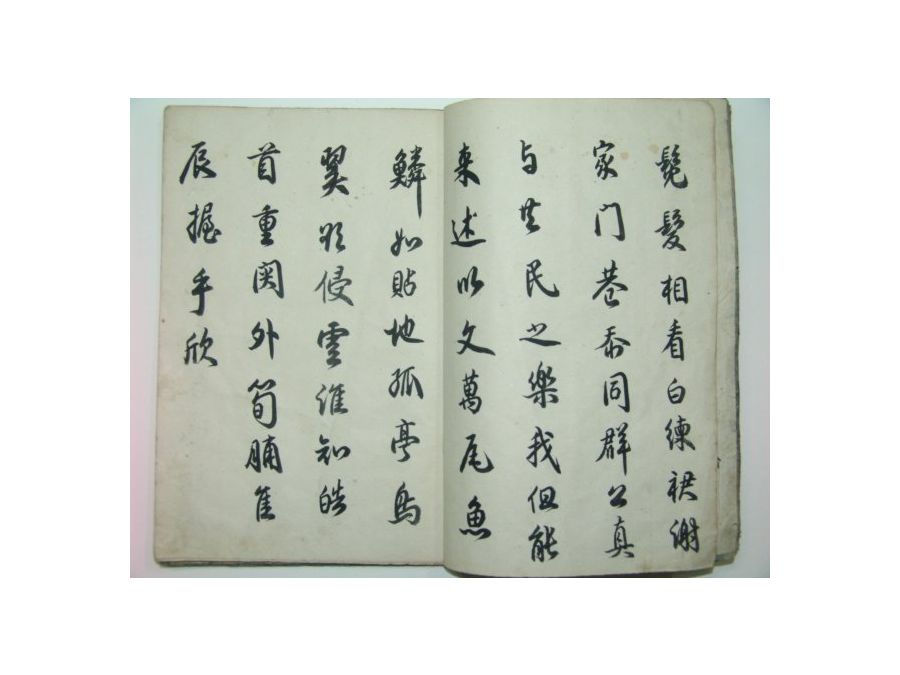 鬓髮相看白練裙謝
家门巷忝同群公真
与共民之樂我但能
来述以文萬尾魚
鱗如貼地孤亭鳥
翼欲侵雲誰知皓
首重関外筍脯佳
辰握手欣